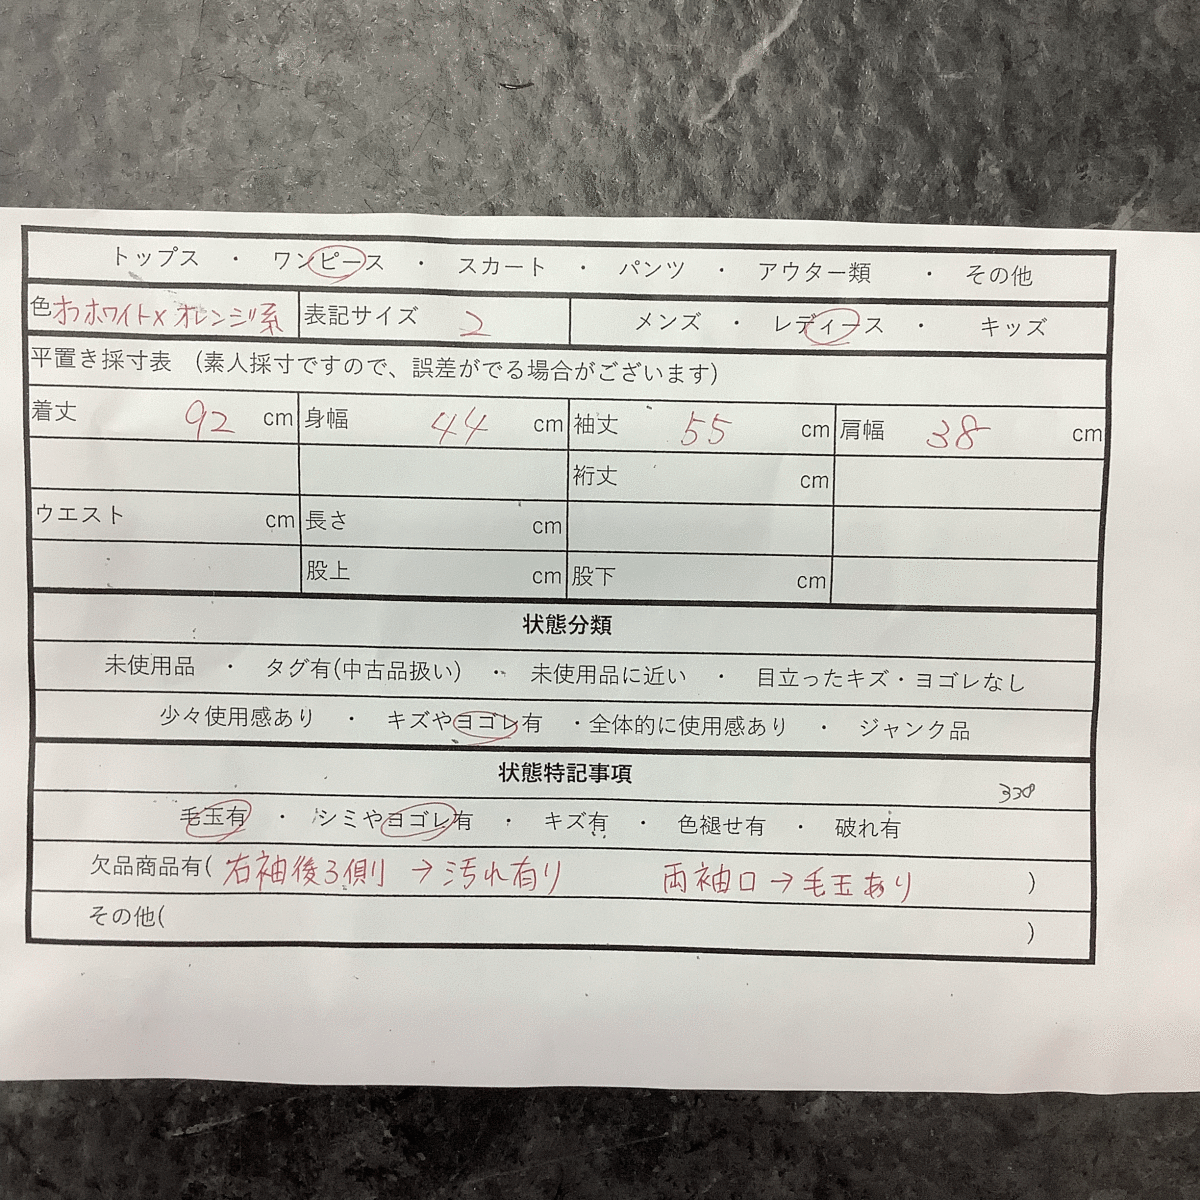 トップス ・ ワンピース ・ スカート ・ パンツ ・ アウター類 ・ その他
色 オフホワイト×オレンジ系 表記サイズ 2 メンズ ・ レディース ・ キッズ
平置き採寸表 (素人採寸ですので、誤差がでる場合がございます)
着丈 92 cm 身幅 44 cm 袖丈 55 cm 肩幅 38 cm
裄丈 cm
ウエスト cm 長さ cm
股上 cm 股下 cm
状態分類
未使用品 ・ タグ有(中古品扱い) ・ 未使用品に近い ・ 目立ったキズ・ヨゴレなし
少々使用感あり ・ キズやヨゴレ有 ・全体的に使用感あり ・ ジャンク品
状態特記事項
338
毛玉有 ・ シミやヨゴレ有 ・ キズ有 ・ 色褪せ有 ・ 破れ有
欠品商品有( 右袖後ろ側 → 汚れ有り 両袖口 → 毛玉あり )
その他( )